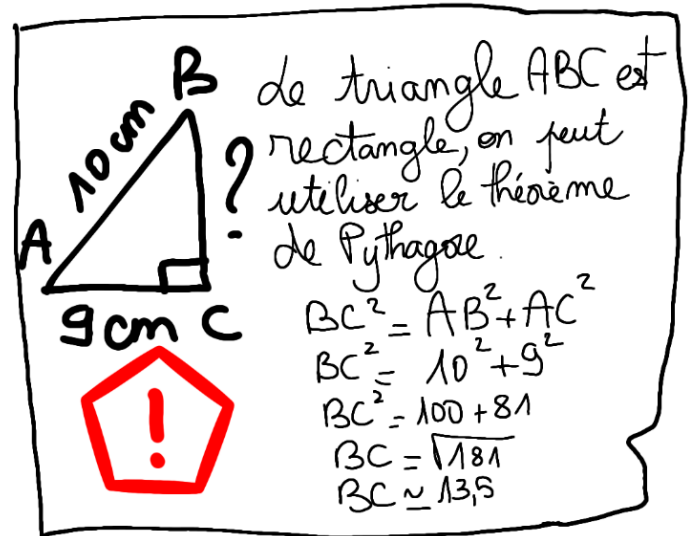 B
10 cm
A
?
9 cm C
!
Le triangle ABC est
rectangle, on peut
utiliser le théorème
de Pythagore.
BC² = AB² + AC²
BC² = 10² + 9²
BC² = 100 + 81
BC = √181
BC ≃ 13,5